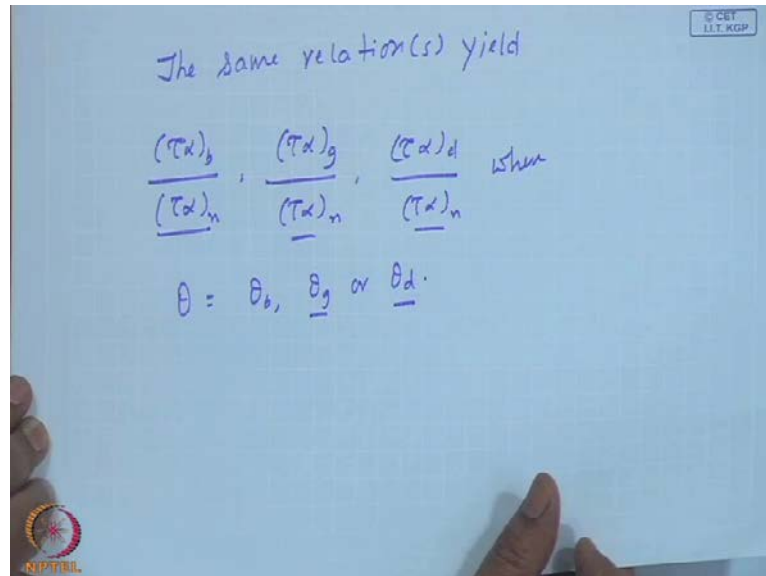 © CET
I.I.T. KGP
The same relation(s) yield
(τα)b / (τα)n , (τα)g / (τα)n , (τα)d / (τα)n when
θ = θb, θg or θd.
NPTEL